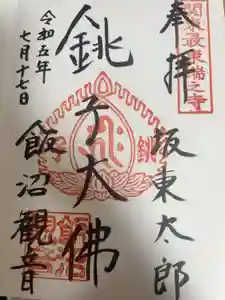 関東最東端之寺
奉拝
坂東太郎
銚子大佛
銚子
飯沼観音
令和五年
七月十七日